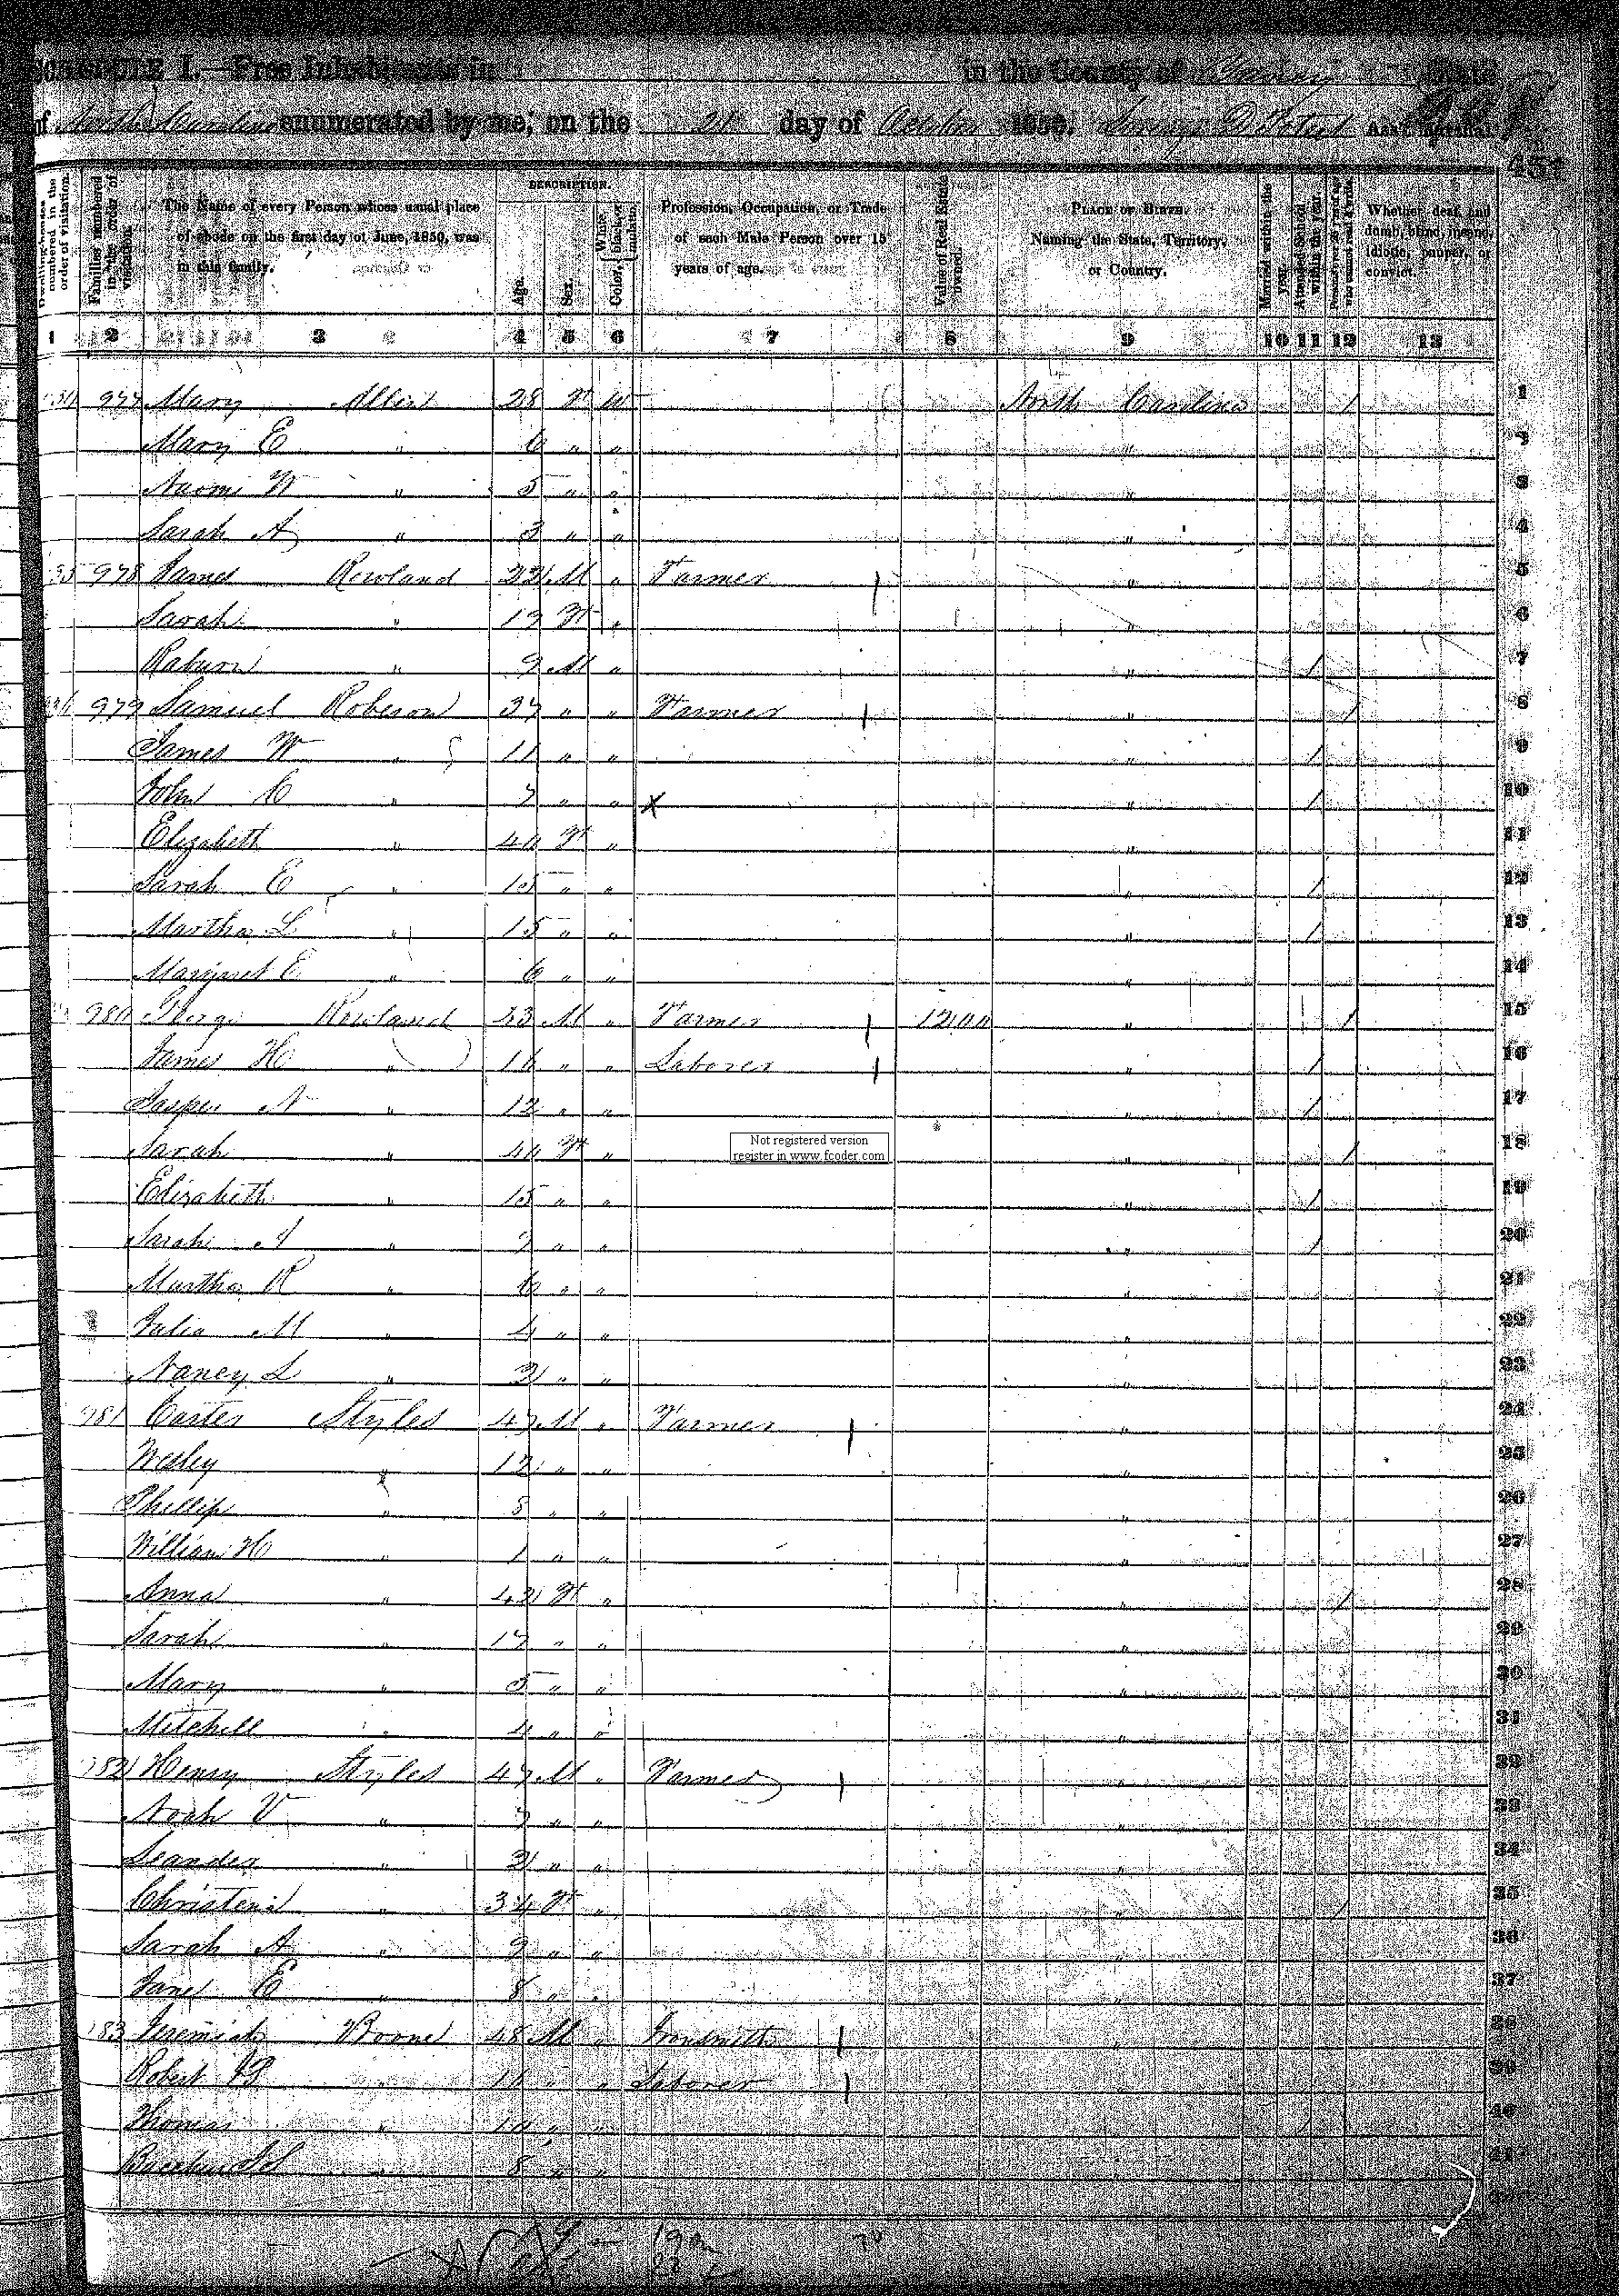 SCHEDULE I.—Free Inhabitants in in the County of Yancey State
of North Carolina enumerated by me, on the 21 day of October 1850. Ass't Marshal.
431
Dwelling-houses numbered in the order of visitation.
Families numbered in the order of visitation.
The Name of every Person whose usual place of abode on the first day of June, 1850, was in this family.
DESCRIPTION.
Age.
Sex.
Color, White, black, or mulatto.
Profession, Occupation, or Trade of each Male Person over 15 years of age.
Value of Real Estate owned.
PLACE OF BIRTH. Naming the State, Territory, or Country.
Married within the year.
Attended School within the year.
Persons over 20 y'rs of age who cannot read & write.
Whether deaf and dumb, blind, insane, idiotic, pauper, or convict.
1 2 3 4 5 6 7 8 9 10 11 12 13
977 Mary Albin 28 F W North Carolina / 1
Mary E " 6 " " " 2
Naomi W " 5 " " " 3
Sarah A " 3 " " " 4
978 James Rowland 22 M " Farmer " 5
Sarah " 19 F " " 6
Raburn " 9 M " " / 7
979 Samuel Roberson 37 " " Farmer " / 8
James W " 11 " " " / 9
John C " 7 " " X " / 10
Elizabeth " 40 F " " 11
Sarah E " 15 " " " / 12
Martha L " 15 " " " / 13
Margaret E " 6 " " " 14
980 Rowland 53 M " Farmer 1200 " / 15
James H " 16 " " Laborer " / 16
Jasper N " 12 " " " / 17
Sarah " 40 F " " / 18
Not registered version
register in www.fcoder.com
Elizabeth " 15 " " " / 19
Sarah J " 9 " " " / 20
Martha R " 6 " " " 21
Julia M " 4 " " " 22
Nancy L " 2 " " " 23
981 Carter Styles 47 M " Farmer " 24
Wesley " 12 " " " 25
Phillip " 8 " " " 26
William H " 1 " " " 27
Anna " 42 F " " / 28
Sarah " 17 " " " 29
Mary " 5 " " " 30
Mitchell " 4 " " " 31
982 Henry Styles 47 M " Farmer " 32
Noah V " 7 " " " 33
Leander " 2 " " " 34
Christena " 34 F " " / 35
Sarah A " 9 " " " 36
Jane E " 8 " " " 37
983 Jeremiah Boone 48 M " Ironsmith " 38
Robert B " 16 " " Laborer " 39
Thomas " 10 " " " 40
8 " " " 41
42